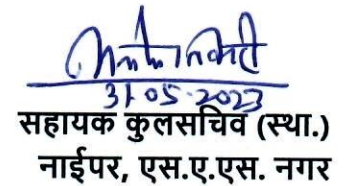 31.05.2023
सहायक कुलसचिव (स्था.)
नाईपर, एस.ए.एस. नगर